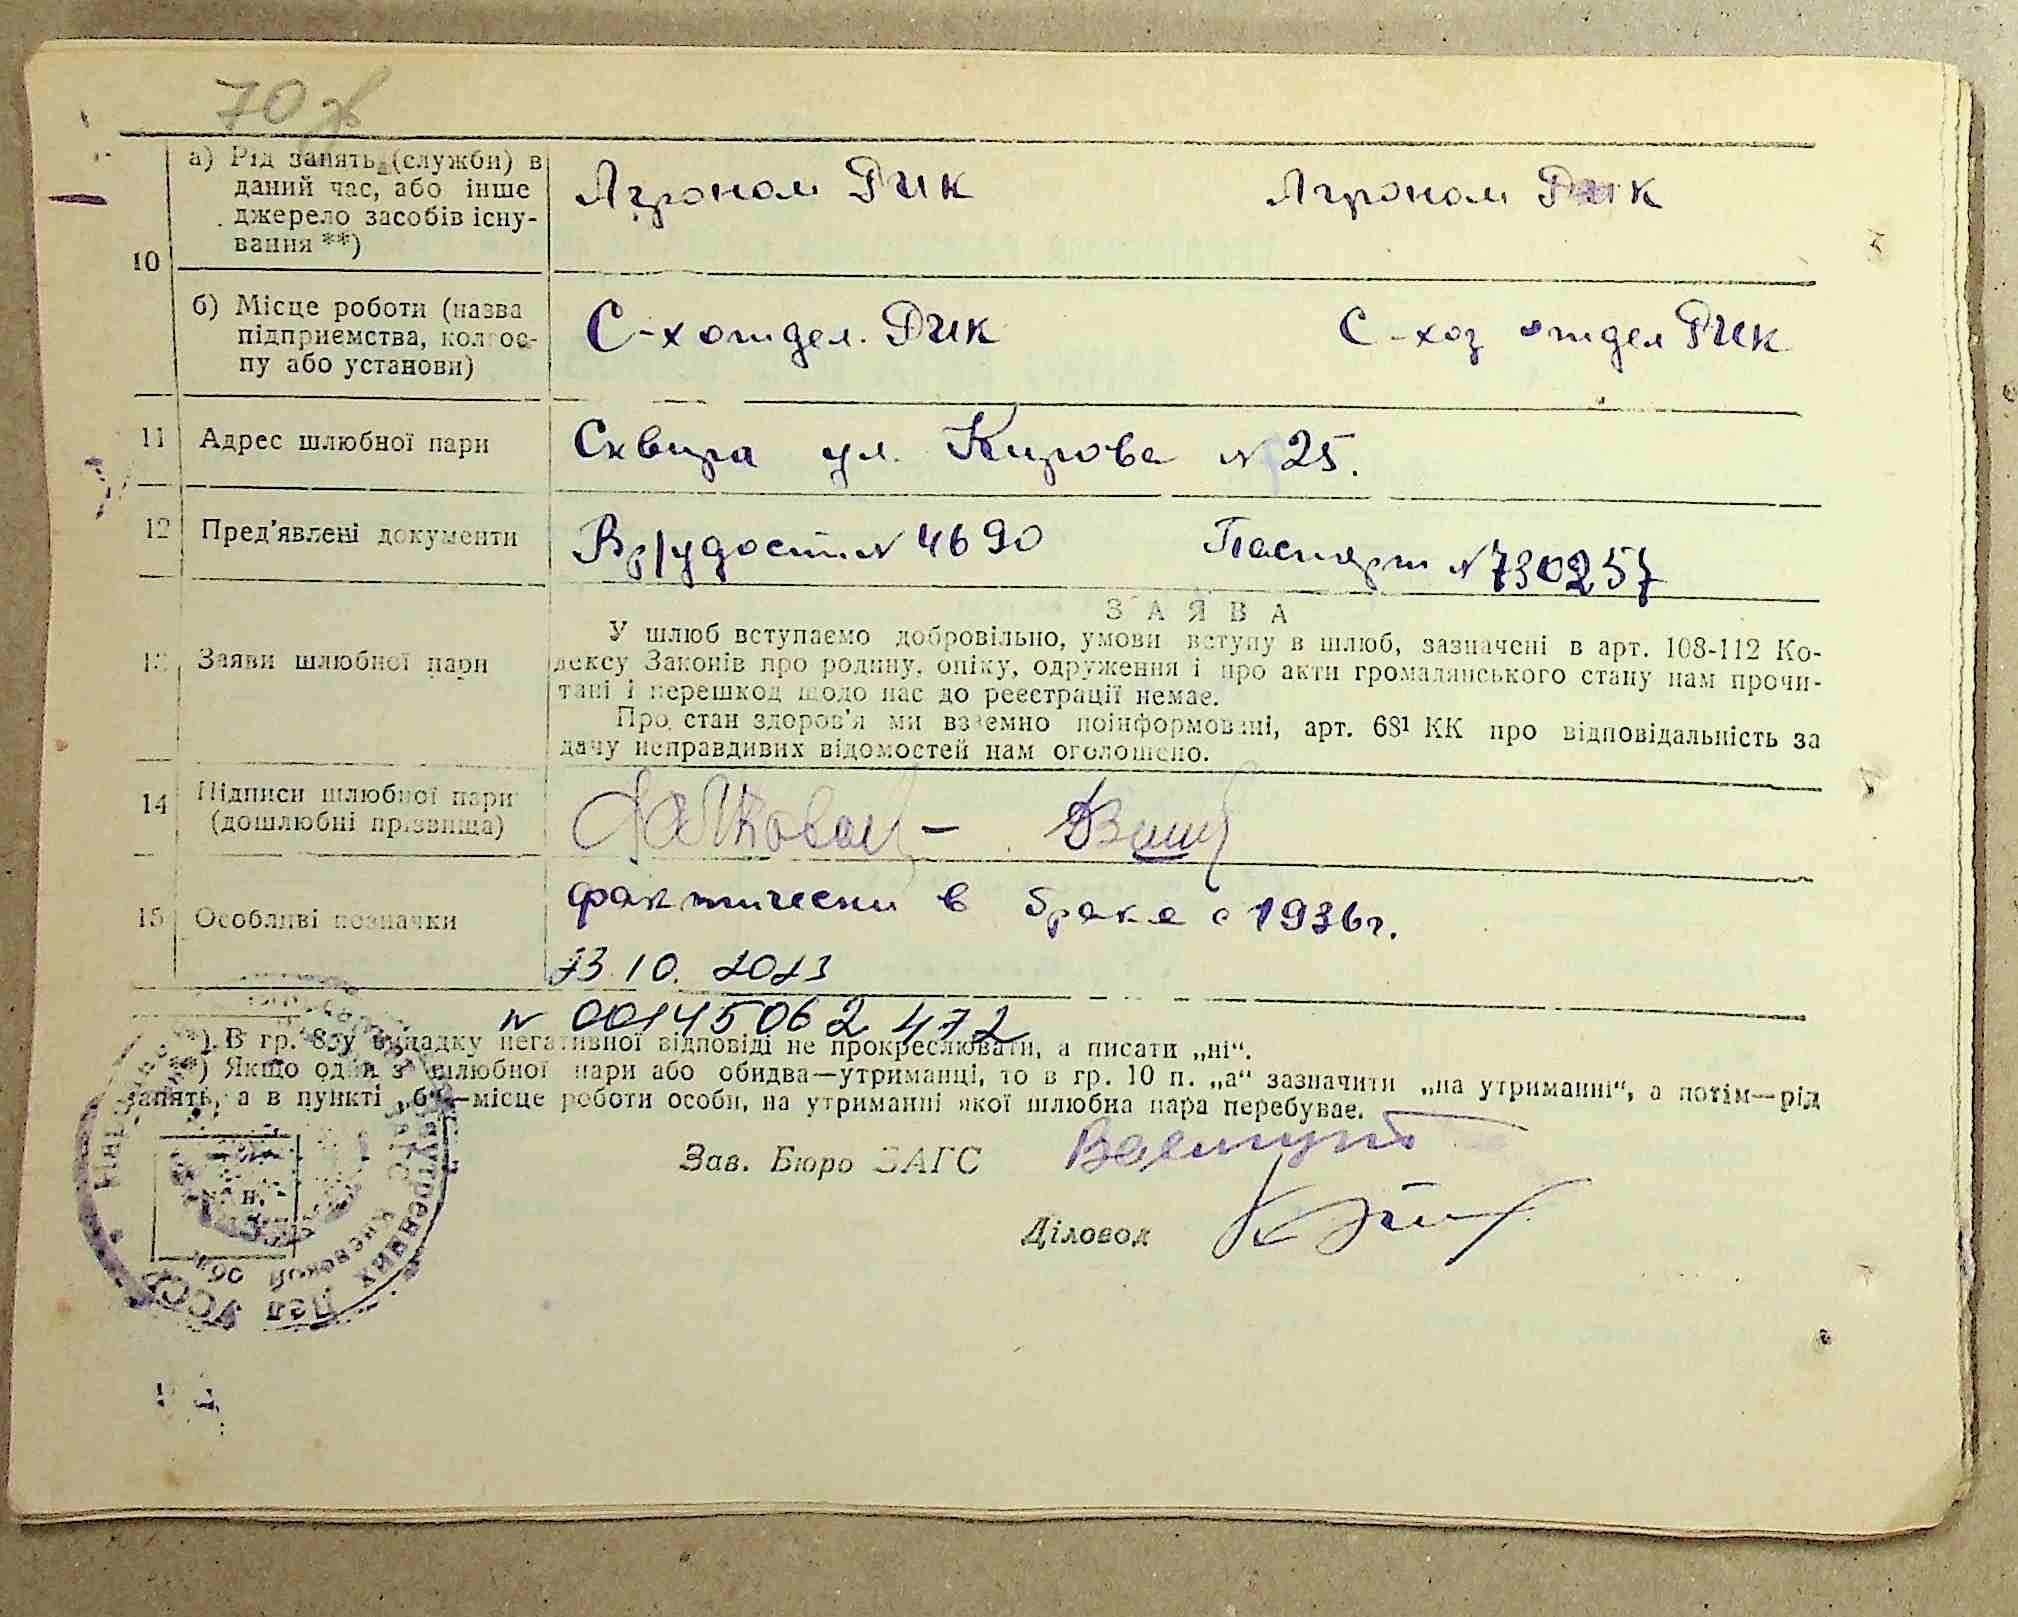 70
а) Рід занять (служби) в
даний час, або інше
джерело засобів існу-
вання **)
Агроном РИК Агроном РИК
10
б) Місце роботи (назва
підприємства, колгос-
пу або установи)
С-х отдел. РИК С-хоз отдел РИК
11 Адрес шлюбної пари Сквира ул. Кирова № 25.
12 Пред'явлені документи Вр/удост № 4690 Паспорт № 730257
13 Заяви шлюбної пари
ЗАЯВА
У шлюб вступаємо добровільно, умови вступу в шлюб, зазначені в арт. 108-112 Ко-
дексу Законів про родину, опіку, одруження і про акти громадянського стану нам прочи-
тані і перешкод щодо нас до реєстрації немає.
Про стан здоров'я ми взаємно поінформовані, арт. 68¹ КК про відповідальність за
дачу неправдивих відомостей нам оголошено.
14 Підписи шлюбної пари
(дошлюбні прізвища)
15 Особливі позначки фактически в браке с 1936 г.
23.10.2023
N 00145062472
*) В гр. 8 у випадку негативної відповіді не прокреслювати, а писати „ні“.
**) Якщо один з шлюбної пари або обидва—утриманці, то в гр. 10 п. „а“ зазначити „на утриманні“, а потім—рід
занять, а в пункті „б“—місце роботи особи, на утриманні якої шлюбна пара перебуває.
Зав. Бюро ЗАГС
Діловод
внутренних Дел УССР
ЗАГС Киевской обл